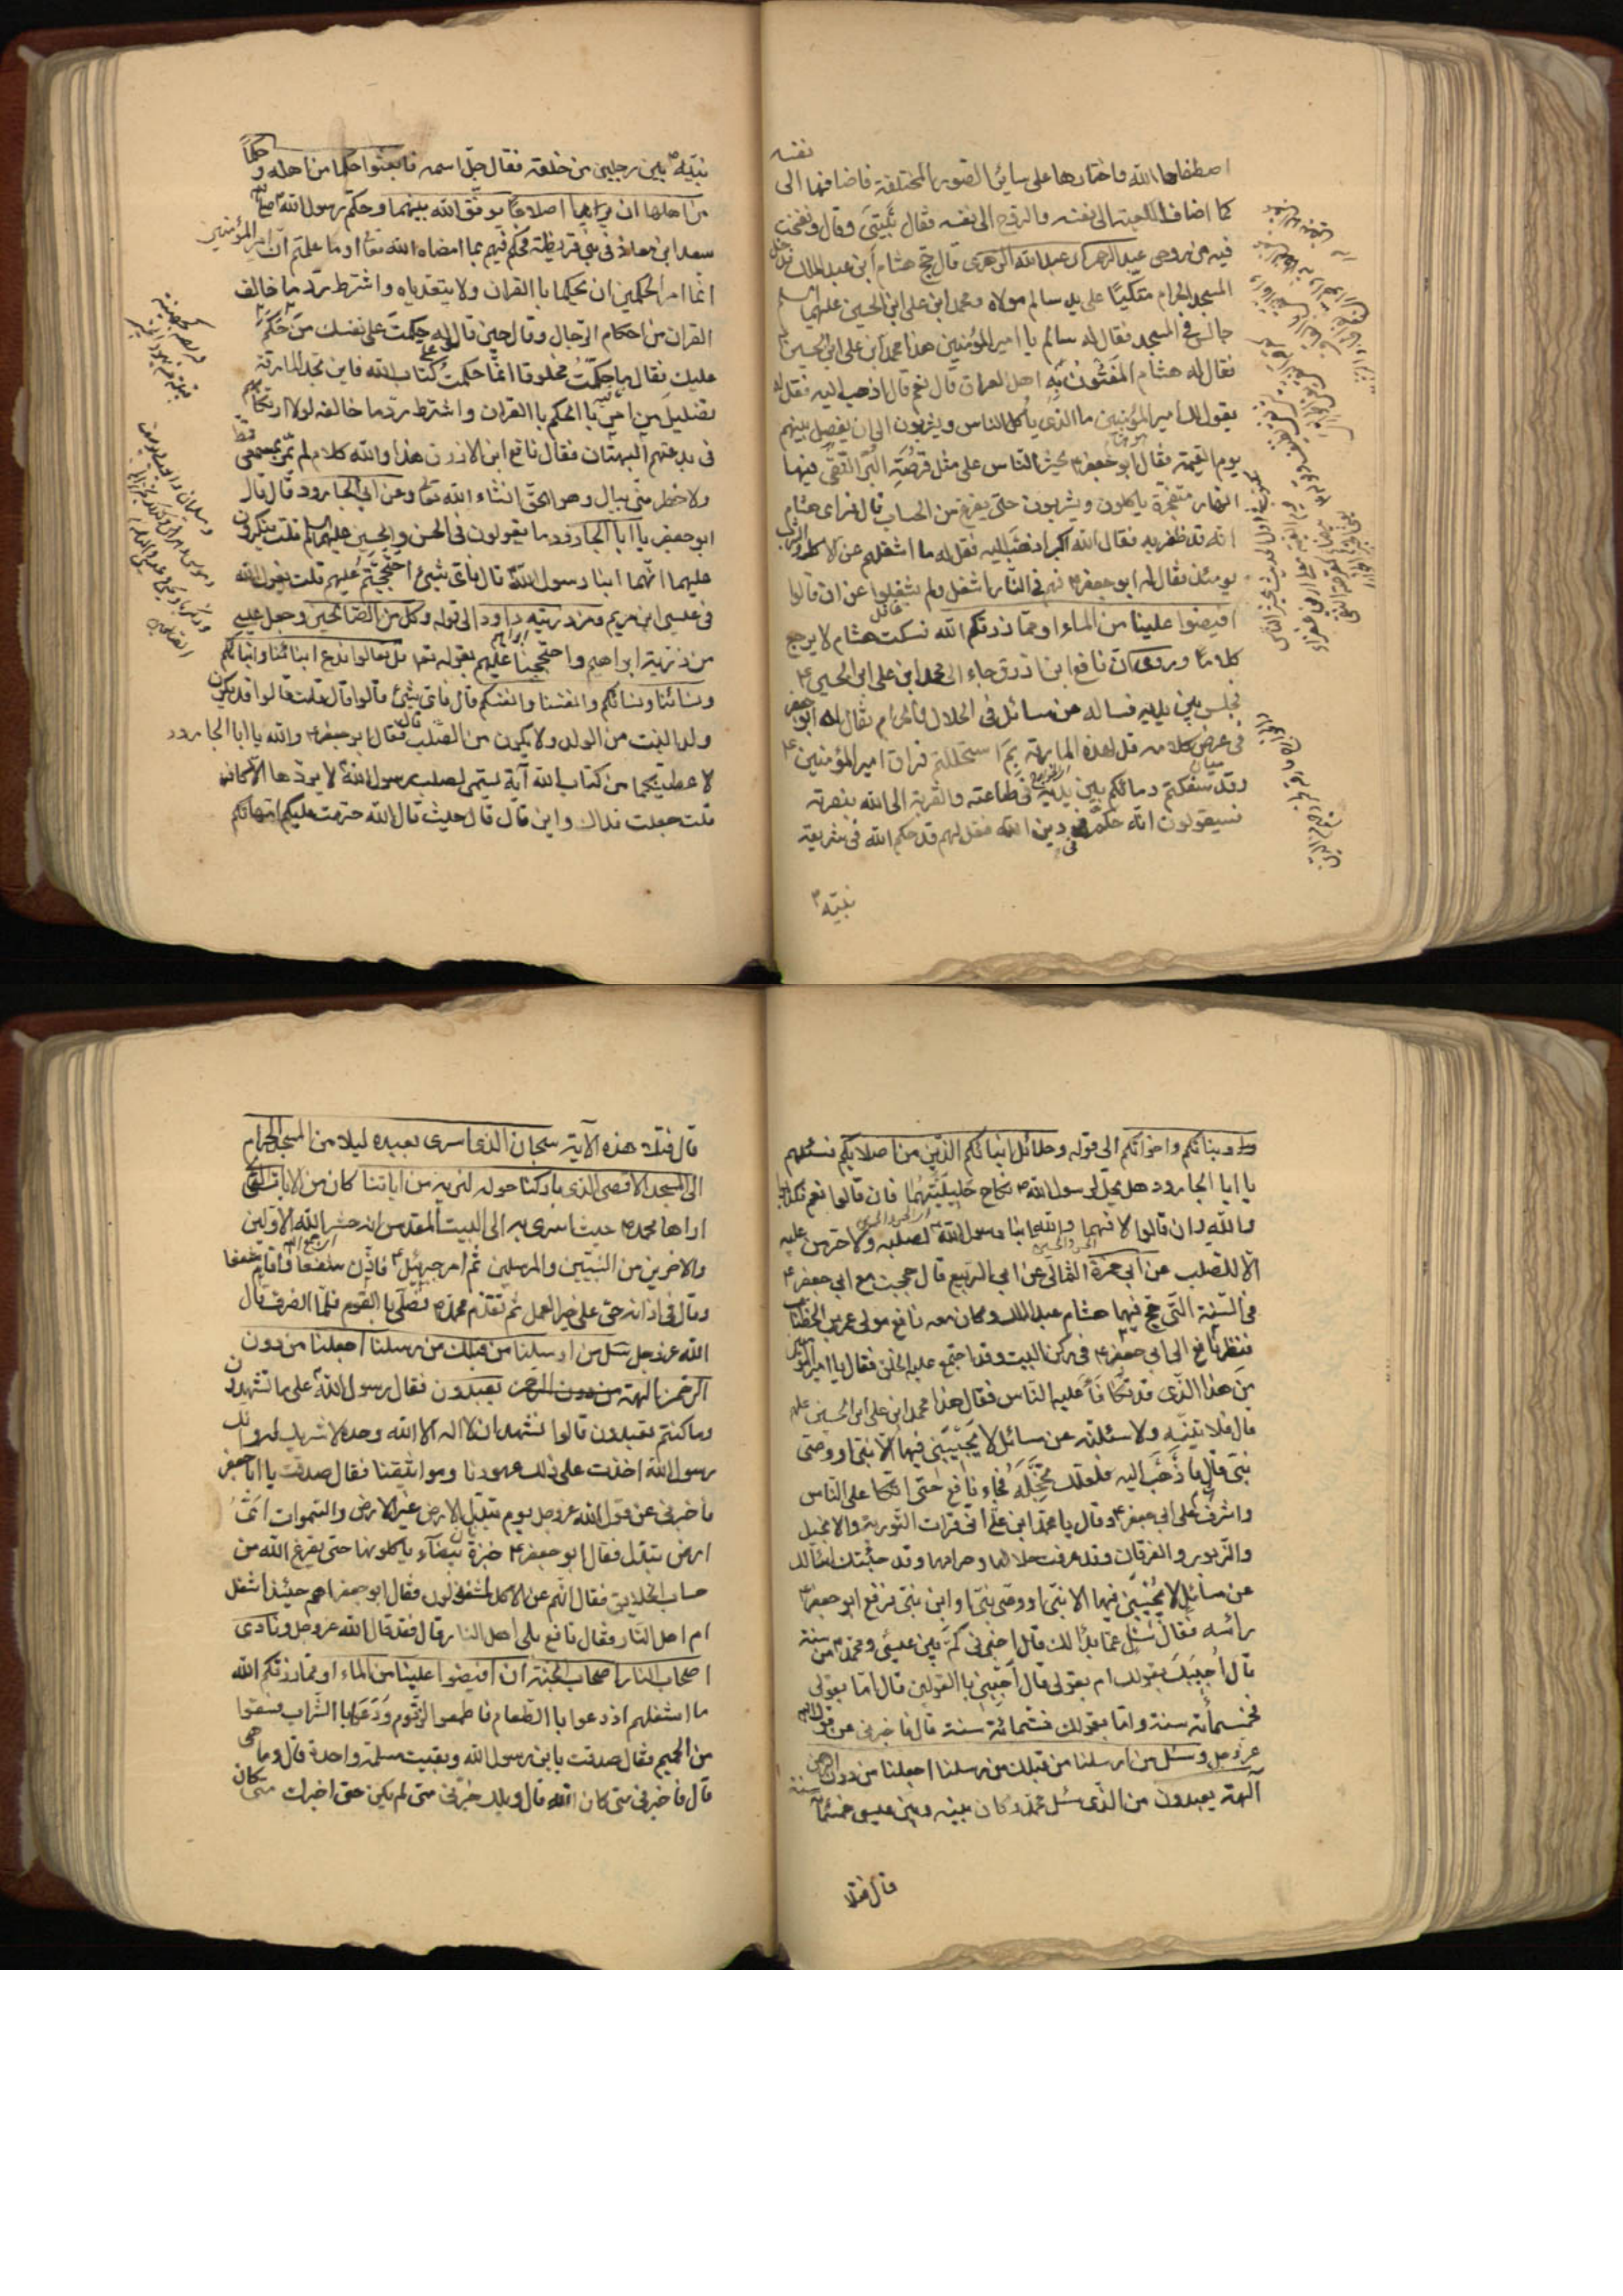 اصطفاها الله واختارها على سائر الصور المختلفة فاضافها الى نفسه
كما اضاف الكعبة الى نفسه والروح الى نفسه فقال بَيْتِيَ وقال ونفخت
فيه من روحى عبد الرحمن عبد الله الزهرى قال حج هشام ابن عبد الملك فدخل
المسجد الحرام متكئا على يد سالم مولاه ومحمد ابن على ابن الحسين عليهما السلم
جالس فى المسجد فقال له سالم يا امير المؤمنين هذا محمد ابن على ابن الحسين
فقال له هشام المَفْتُون بِهِ اهل العراق قال نعم قال اذهب اليه فقل له
يقول لك امير المؤمنين ما الذى ياكل الناس ويشربون الى ان يفصل بينهم
يوم القيمة فقال ابو جعفر يحشر الناس على مثل قرصة البر النقى فيها
انهار متفجرة ياكلون ويشربون حتى يفرغ من الحساب قال فراى هشام
انه قد ظفر به فقال الله اكبر اذهب اليه فقل له ما اشغلهم عن الاكل والشرب
يومئذ فقال له ابو جعفر هم فى النار اشغل ولم يشغلوا عن ان قالوا
افيضوا علينا من الماء او مما رزقكم الله فسكت هشام لا يرجع
كلاما وروى ان نافع ابن ازرق جاء الى محمد ابن على ابن الحسين
فجلس بين يديه فساله عن مسائل فى الحلال والحرام فقال له ابو جعفر
فى عرض كلامه قل لهذه المارقة بِمَ استحللتم فراق امير المؤمنين
وقد سفكتم دمائكم بين يديه فى طاعته والقربة الى الله بنصرته
فسيقولون انه حكم فى دين الله فقل لهم قد حكم الله فى شريعة
نبيه
نبيه بين رجلين من خلقه فقال جل اسمه فابعثوا حكما من اهله وحكما
من اهلها ان يريدا اصلاحا يوفق الله بينهما وحكم رسول الله
سعد ابن معاذ فى بنى قريظة فحكم فيهم بما امضاه الله تعالى او ما علمتم ان امير المؤمنين
انما امر الحكمين ان يحكما باالقران ولا يتعدياه واشترط رد ما خالف
القران من احكام الرجال وقال حين قال له حكمت على نفسك من حكم
عليك فقال ما حكمت مخلوقا انما حكمت كتاب الله فاين تجد المارقة
تضليل من امر باالحكم باالقران واشترط رد ما خالفه لولا ارتكابهم
فى بدعتهم البهتان فقال نافع ابن الازرق هذا والله كلام لم يمر بسمعى قط
ولا خطر منى ببال وهو الحق انشاء الله تعالى وعن ابى الجارود قال قال
ابو جعفر يا ابا الجارود ما يقولون فى الحسن والحسين عليهم السلم قلت ينكرون
عليهما انهما ابنا رسول الله قال فاى شىء احتججتم عليهم قلت بقول الله
فى عيسى ابن مريم ومن ذريته داود الى قوله وكل من الصالحين وجعل عيسى
من ذرية ابراهيم واحتججنا عليهم بقوله تعالى قل تعالوا ندع ابنائنا وابنائكم
ونسائنا ونسائكم وانفسنا وانفسكم قال فاى شىء قالوا قال قلت قالوا قد يكون
ولد البنت من الولد ولا يكون من الصلب قال فقال ابو جعفر والله يا ابا الجارود
لاعطيتكها من كتاب الله آية تسمى لصلب رسول الله لا يردها الا كافر
قلت جعلت فداك واين قال قال حيث قال الله حرمت عليكم امهاتكم
وبناتكم واخواتكم الى قوله وحلائل ابنائكم الذين من اصلابكم فسئلهم
يا ابا الجارود هل يحل لرسول الله نكاح حَلِيلَتِهُمَا فان قالوا نعم فكذبوا
والله وان قالوا لا فهما والله ابنا رسول الله لصلبه وما حرمن عليه
الا للصلب عن ابى حمزة الثمالى عن ابى الربيع قال حججت مع ابى جعفر
فى السنة التى حج فيها هشام عبد الملك وكان معه نافع مولى عمر بن الخطاب
فنظر نافع الى ابى جعفر فى ركن البيت وقد اجتمع عليه الخلق فقال يا امير المؤمنين
من هذا الذى قد تكافأ عليه الناس فقال هذا محمد ابن على ابن الحسين
قال فلاتينه ولاسئلنه عن مسائل لا يجيبنى فيها الا نبى او وصى
نبى قال فاذهب اليه فلعلك تخجله فجاء نافع حتى اتكا على الناس
واشرف على ابى جعفر وقال يا محمد ابن على انى قرات التورية والانجيل
والزبور والفرقان وقد عرفت حلالها وحرامها وقد جئتك اسألك
عن مسائل لا يجيبنى فيها الا نبى او وصى نبى او ابن نبى فرفع ابو جعفر
رأسه فقال سئل عما بدا لك قال اخبرنى كم بين عيسى ومحمد من سنة
قال اجيبك بقولك ام بقولى قال اجبنى باالقولين قال اما بقولى
فخمسمأته سنة واما بقولك فستمائة سنة قال فاخبرنى عن قول الله
عز وجل وسئل من ارسلنا من قبلك من رسلنا اجعلنا من دون الرحمن
آلهة يعبدون من الذى سئل محمد وكان بينه وبين عيسى خمسمأة سنة
قال فتلا
قال فتلا هذه الآية سبحان الذى اسرى بعبده ليلا من المسجد الحرام
الى المسجد الاقصى الذى باركنا حوله لنريه من اياتنا كان من الايات التى
اراها محمد حيث اسرى به الى البيت المقدس انه حشر الله الاولين
والاخرين من النبيين والمرسلين ثم امر جبرئيل فاذن شفعا واقام شفعا
وقال فى اذانه حى على خير العمل ثم تقدم محمد فصلى باالقوم فلما انصرف قال
الله عز وجل سئل من ارسلنا من قبلك من رسلنا اجعلنا من دون
الرحمن الهة يعبدون فقال رسول الله على ما تشهدون
وما كنتم تعبدون قالوا نشهد ان لا اله الا الله وحده لا شريك له وانك
رسول الله اخذت على ذلك عهودنا ومواثيقنا فقال صدقت يا ابا جعفر
فاخبرنى عن قول الله عز وجل يوم تبدل الارض غير الارض والسموات اى
ارض تبدل فقال ابو جعفر خبزة بيضاء ياكلونها حتى يفرغ الله من
حساب الخلايق فقال انهم عن الاكل لمشغولون فقال ابو جعفر اهم حينئذ اشغل
ام اهل النار فقال نافع بلى اهل النار قال فقد قال الله عز وجل ونادى
اصحاب النار اصحاب الجنة ان افيضوا علينا من الماء او مما رزقكم الله
ما اشغلهم اذ دعوا باالطعام فاطعموا الزقوم ودعوا باالشراب فسقوا
من الحميم فقال صدقت يابن رسول الله وبقيت مسئلة واحدة قال وما هى
قال فاخبرنى متى كان الله قال ويلك خبرنى متى لم يكن حتى اخبرك متى كان